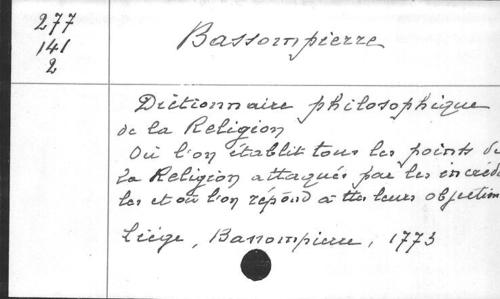 277
141
2
Bassompierre
Dictionnaire philosophique
de la Religion
Où l'on établit tous les points de
la Religion attaqués par les incrédu
les et où l'on répond à ttes leurs objections
Liége, Bassompierre, 1773